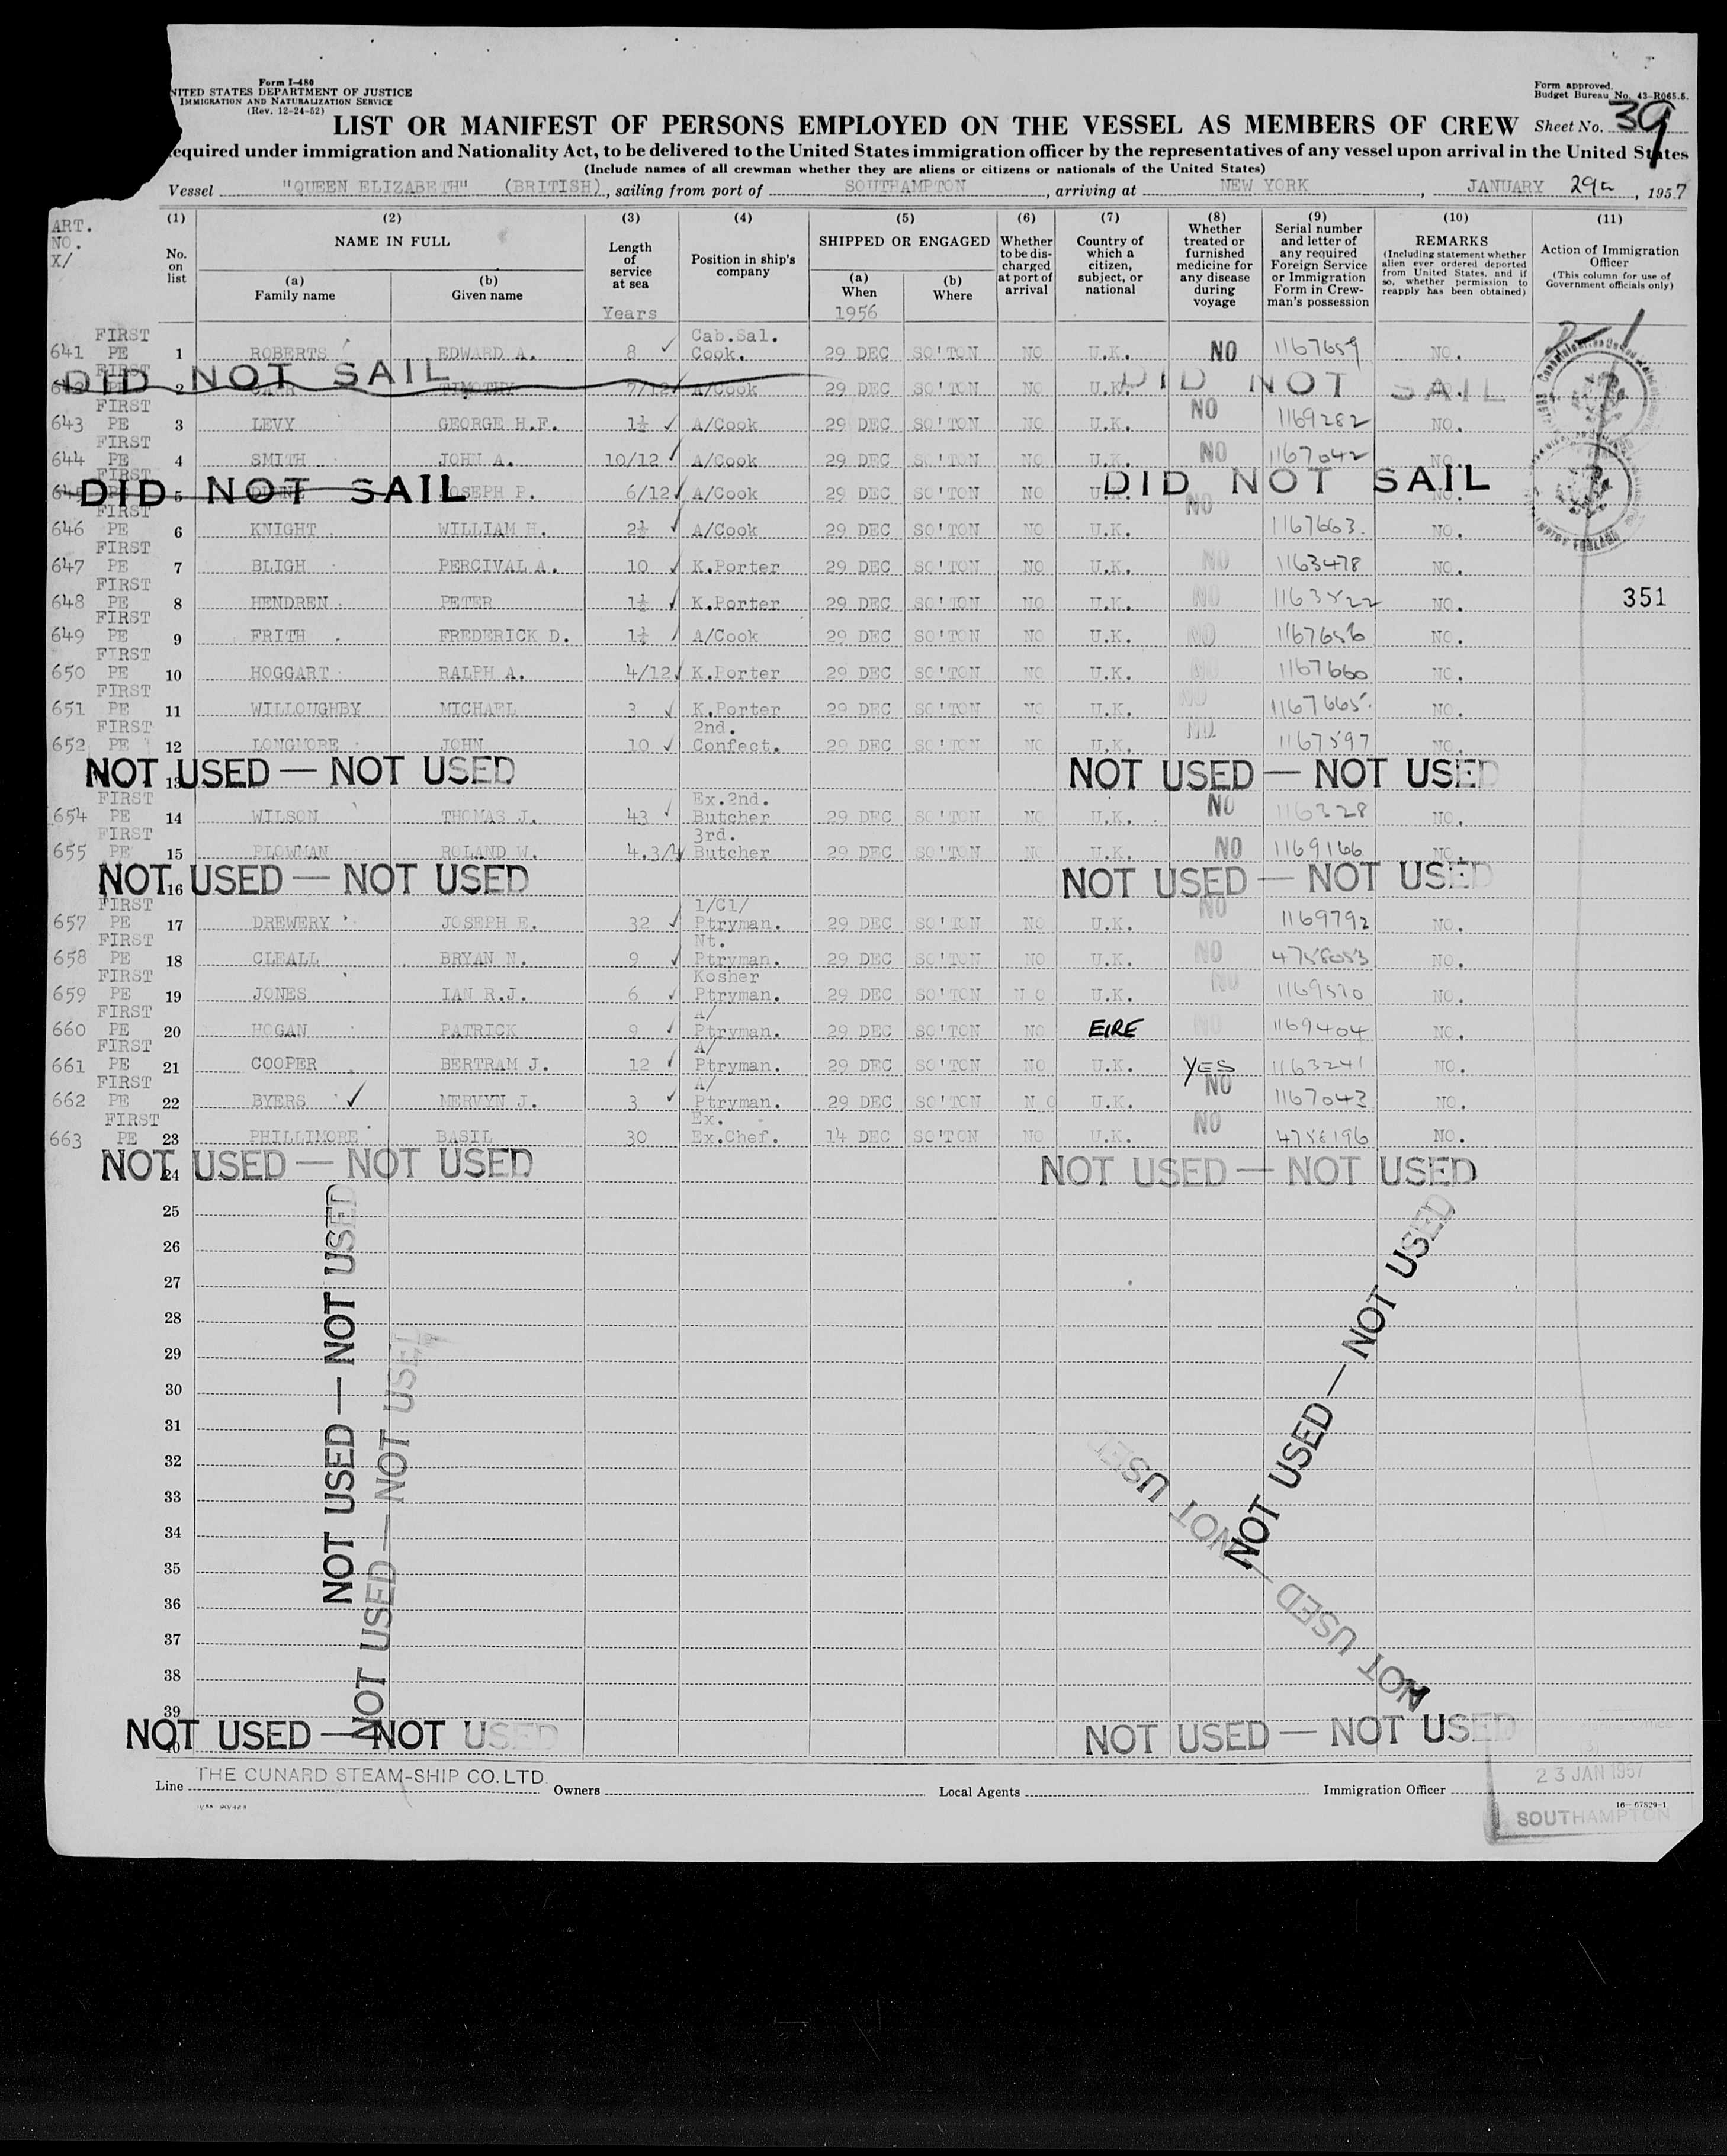 Form I-480
NITED STATES DEPARTMENT OF JUSTICE
IMMIGRATION AND NATURALIZATION SERVICE
(Rev. 12-24-52)
Form approved.
Budget Bureau No. 43-R065.5.
LIST OR MANIFEST OF PERSONS EMPLOYED ON THE VESSEL AS MEMBERS OF CREW Sheet No. 39
equired under immigration and Nationality Act, to be delivered to the United States immigration officer by the representatives of any vessel upon arrival in the United States
(Include names of all crewman whether they are aliens or citizens or nationals of the United States)
Vessel "QUEEN ELIZABETH" (BRITISH), sailing from port of SOUTHAMPTON, arriving at NEW YORK, JANUARY 29, 1957
ART. NO. X/
(1) No. on list
(2) NAME IN FULL (a) Family name (b) Given name
(3) Length of service at sea Years
(4) Position in ship's company
(5) SHIPPED OR ENGAGED (a) When 1956 (b) Where
(6) Whether to be discharged at port of arrival
(7) Country of which a citizen, subject, or national
(8) Whether treated or furnished medicine for any disease during voyage
(9) Serial number and letter of any required Foreign Service or Immigration Form in Crewman's possession
(10) REMARKS (Including statement whether alien ever ordered deported from United States, and if so, whether permission to reapply has been obtained)
(11) Action of Immigration Officer (This column for use of Government officials only)
641 FIRST PE 1 ROBERTS EDWARD A. 8 Cab.Sal. Cook. 29 DEC SO'TON NO U.K. NO 1167659 NO.
642 FIRST 2 TIMOTHY 7/12 A/Cook 29 DEC SO'TON NO U.K.
DID NOT SAIL DID NOT SAIL
643 FIRST PE 3 LEVY GEORGE H.F. 1½ A/Cook 29 DEC SO'TON NO U.K. NO 1169282 NO.
644 FIRST PE 4 SMITH JOHN A. 10/12 A/Cook 29 DEC SO'TON NO U.K. NO 1167042 NO.
645 FIRST 5 JOSEPH P. 6/12 A/Cook 29 DEC SO'TON NO U.K. NO NO.
DID NOT SAIL DID NOT SAIL
646 FIRST PE 6 KNIGHT WILLIAM H. 2½ A/Cook 29 DEC SO'TON NO U.K. 1167663. NO.
647 FIRST PE 7 BLIGH PERCIVAL A. 10 K.Porter 29 DEC SO'TON NO U.K. NO 1163478 NO.
648 FIRST PE 8 HENDREN PETER 1½ K.Porter 29 DEC SO'TON NO U.K. NO 1163522 NO. 351
649 FIRST PE 9 FRITH FREDERICK D. 1½ A/Cook 29 DEC SO'TON NO U.K. NO 1167656 NO.
650 FIRST PE 10 HOGGART RALPH A. 4/12 K.Porter 29 DEC SO'TON NO U.K. NO 1167660 NO.
651 FIRST PE 11 WILLOUGHBY MICHAEL 3 K.Porter 29 DEC SO'TON NO U.K. NO 1167665. NO.
652 FIRST PE 12 LONGMORE JOHN 10 2nd. Confect. 29 DEC SO'TON NO U.K. NO 1167597 NO.
13 NOT USED — NOT USED NOT USED — NOT USED
654 FIRST PE 14 WILSON THOMAS J. 43 Ex.2nd. Butcher 29 DEC SO'TON NO U.K. NO 116328 NO.
655 FIRST PE 15 PLOWMAN ROLAND W. 4.3/4 3rd. Butcher 29 DEC SO'TON NO U.K. NO 1169166 NO.
16 NOT USED — NOT USED NOT USED — NOT USED
657 FIRST PE 17 DREWERY JOSEPH E. 32 1/Cl/ Ptryman. 29 DEC SO'TON NO U.K. NO 1169792 NO.
658 FIRST PE 18 CLEALL BRYAN N. 9 Nt. Ptryman. 29 DEC SO'TON NO U.K. NO 4758053 NO.
659 FIRST PE 19 JONES IAN R.J. 6 Kosher Ptryman. 29 DEC SO'TON NO U.K. NO 1169510 NO.
660 FIRST PE 20 HOGAN PATRICK 9 A/ Ptryman. 29 DEC SO'TON NO EIRE NO 1169404 NO.
661 FIRST PE 21 COOPER BERTRAM J. 12 A/ Ptryman. 29 DEC SO'TON NO U.K. YES 1163241 NO.
662 FIRST PE 22 BYERS MERVYN J. 3 A/ Ptryman. 29 DEC SO'TON NO U.K. NO 1167043 NO.
663 FIRST PE 23 PHILLIMORE BASIL 30 Ex. Ex.Chef. 14 DEC SO'TON NO U.K. NO 4758196 NO.
24 NOT USED — NOT USED NOT USED — NOT USED
25
26
27
28
29
30
31
32
33
34
35
36
37
38
39
NOT USED — NOT USED
NOT USED — NOT USED
NOT USED — NOT USED
NOT USED — NOT USED
NOT USED — NOT USED NOT USED — NOT USED
Line THE CUNARD STEAM-SHIP CO. LTD. Owners Local Agents Immigration Officer
23 JAN 1957
SOUTHAMPTON
16—67829-1